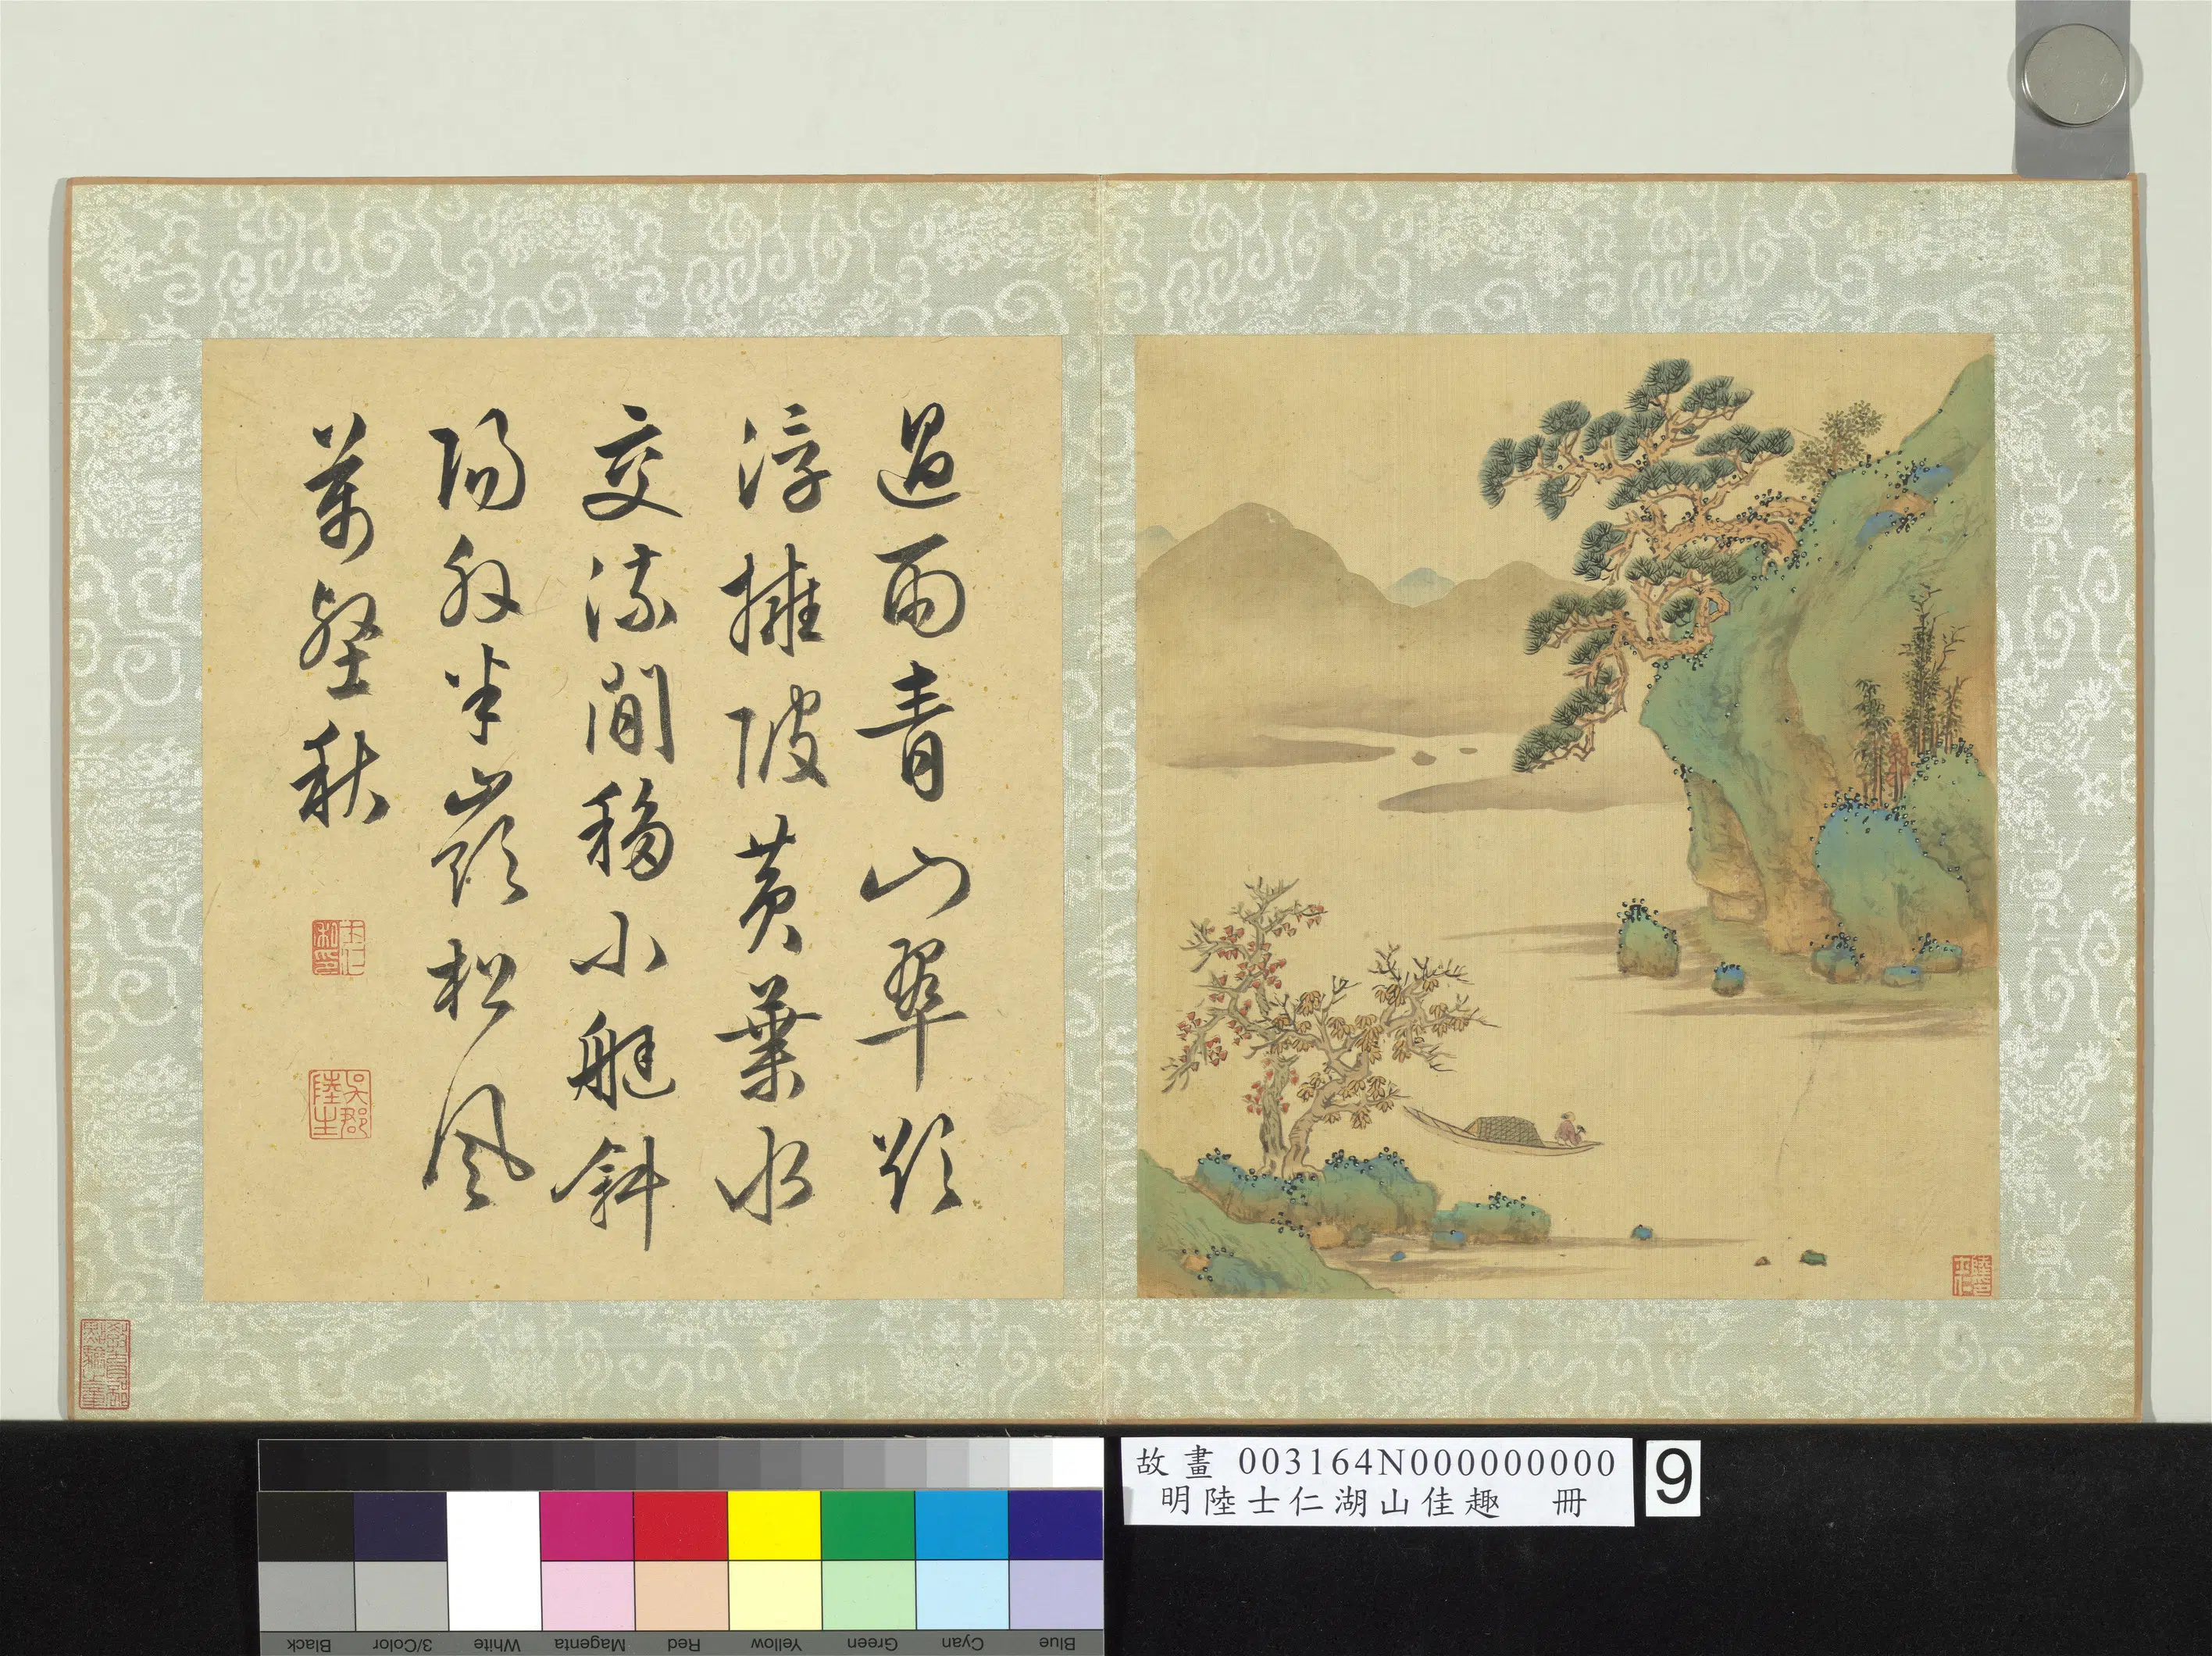 過雨青山翠欲
浮擁陂黃葉水
交流閒移小艇斜
陽外半嶺松風
萬壑秋
士仁
私印
吳郡
陸生
故畫 003164N000000000
明陸士仁湖山佳趣 冊
9
Black
3/Color
White
Magenta
Red
Yellow
Green
Cyan
Blue